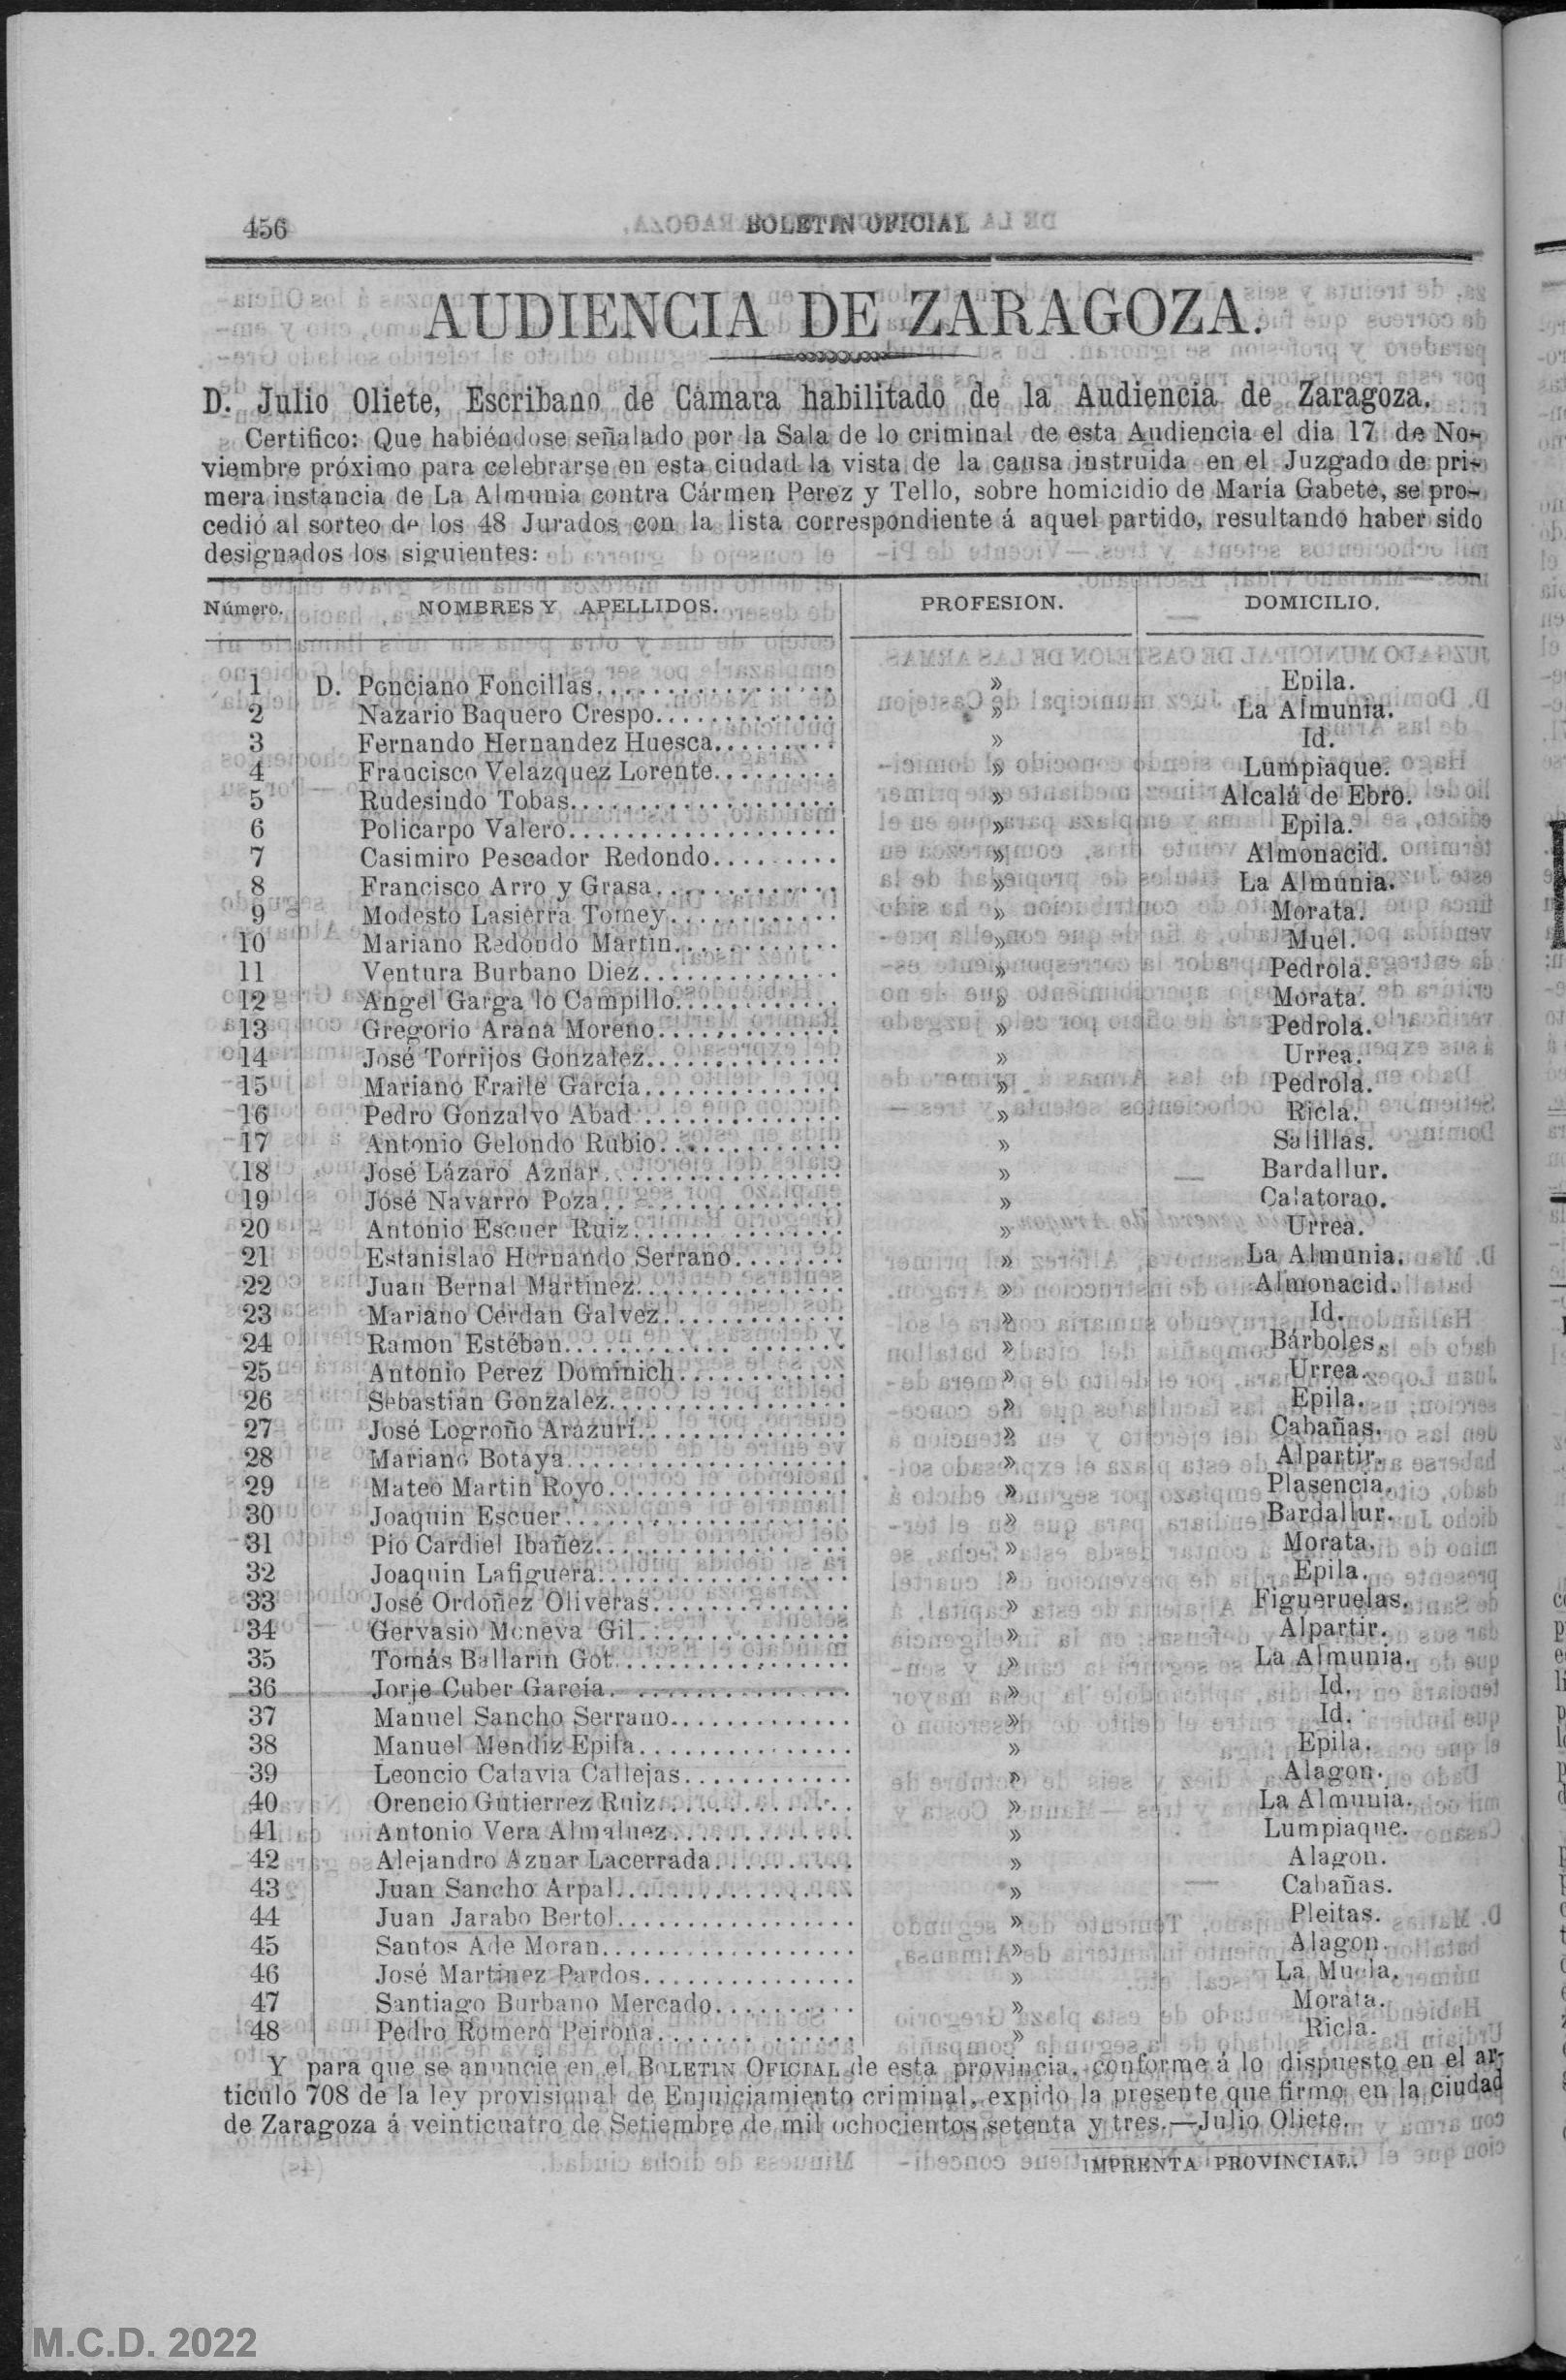 456
BOLETIN OFICIAL
AUDIENCIA DE ZARAGOZA.
D. Julio Oliete, Escribano de Cámara habilitado de la Audiencia de Zaragoza.
Certifico: Que habiéndose señalado por la Sala de lo criminal de esta Audiencia el dia 17 de No-
viembre próximo para celebrarse en esta ciudad la vista de la causa instruida en el Juzgado de pri-
mera instancia de La Almunia contra Cármen Perez y Tello, sobre homicidio de María Gabete, se pro-
cedió al sorteo de los 48 Jurados con la lista correspondiente á aquel partido, resultando haber sido
designados los siguientes:
Número. NOMBRES Y APELLIDOS. PROFESION. DOMICILIO.
1 D. Ponciano Foncillas................. » Epila.
2 Nazario Baquero Crespo............. » La Almunia.
3 Fernando Hernandez Huesca......... » Id.
4 Francisco Velazquez Lorente......... » Lumpiaque.
5 Rudesindo Tobas................... » Alcalá de Ebro.
6 Policarpo Valero................... » Epila.
7 Casimiro Pescador Redondo......... » Almonacid.
8 Francisco Arro y Grasa............. » La Almunia.
9 Modesto Lasierra Tomey............ » Morata.
10 Mariano Redondo Martin............ » Muel.
11 Ventura Burbano Diez.............. » Pedrola.
12 Angel Garga lo Campillo............ » Morata.
13 Gregorio Arana Moreno............. » Pedrola.
14 José Torrijos Gonzalez.............. » Urrea.
15 Mariano Fraile García.............. » Pedrola.
16 Pedro Gonzalvo Abad.............. » Ricla.
17 Antonio Gelondo Rubio............. » Salillas.
18 José Lázaro Aznar................. » Bardallur.
19 José Navarro Poza................. » Calatorao.
20 Antonio Escuer Ruiz............... » Urrea.
21 Estanislao Hernando Serrano........ » La Almunia.
22 Juan Bernal Martinez............... » Almonacid.
23 Mariano Cerdan Galvez............. » Id.
24 Ramon Estéban................... » Bárboles.
25 Antonio Perez Dominich............ » Urrea.
26 Sebastian Gonzalez................. » Epila.
27 José Logroño Arazurí............... » Cabañas.
28 Mariano Botaya.................... » Alpartir.
29 Mateo Martin Royo................. » Plasencia.
30 Joaquin Escuer.................... » Bardallur.
31 Pio Cardiel Ibañez................. » Morata.
32 Joaquin Lafiguera.................. » Epila.
33 José Ordoñez Oliveras.............. » Figueruelas.
34 Gervasio Moneva Gil............... » Alpartir.
35 Tomás Ballarin Got................ » La Almunia.
36 Jorje Cuber Garcia................. » Id.
37 Manuel Sancho Serrano............. » Id.
38 Manuel Mendiz Epila............... » Epila.
39 Leoncio Calavia Callejas............ » Alagon.
40 Orencio Gutierrez Ruiz............. » La Almunia.
41 Antonio Vera Almaluez............. » Lumpiaque.
42 Alejandro Aznar Lacerrada.......... » Alagon.
43 Juan Sancho Arpal................. » Cabañas.
44 Juan Jarabo Bertol................. » Pleitas.
45 Santos Ade Moran.................. » Alagon.
46 José Martinez Pardos............... » La Muela.
47 Santiago Burbano Mercado.......... » Morata.
48 Pedro Romero Peirona.............. » Ricla.
Y para que se anuncie en el BOLETIN OFICIAL de esta provincia, conforme á lo dispuesto en el ar-
tículo 708 de la ley provisional de Enjuiciamiento criminal, expido la presente que firmo en la ciudad
de Zaragoza á veinticuatro de Setiembre de mil ochocientos setenta y tres.—Julio Oliete.
IMPRENTA PROVINCIAL.
M.C.D. 2022